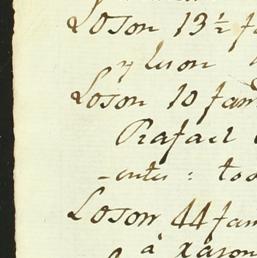 Loson 13½ fa
y luson
Loson 10 fam
Rafael
-entes: too
Loson 44 fam
à xàson